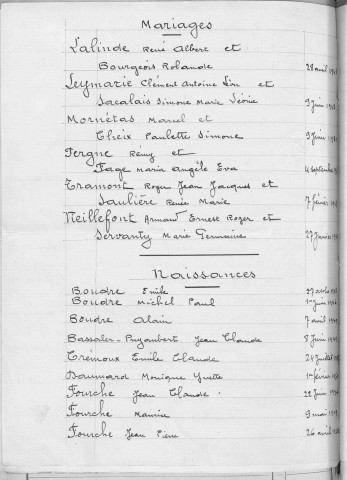 Mariages
Lalinde René Albert et
Bourgeois Rolande 28 avril
Leymarie Clément Antoine Léon et
Lacalais Simone Marie Léonie 9 Juin
Mornétas Marcel et
Cheix Paulette Simone 9 Juin
Pergne Rémy et
Fage Maria Angèle Eva 4 septembre
Tramont Roger Jean Jacques et
Saulière Renée Marie 7 février
Neillefont Armand Ernest Roger et
Servanty Marie Germaine 27 Janvier
Naissances
Boudre Emile 27
Boudre Michel Paul 1er Juin
Boudre Alain 7 avril
Bassaler-Puyjoubert Jean Claude 8 Juin
Trémoux Emile Claude 24 Juillet
Daumard Monique Yvette 1er février
Fourche Jean Claude 22 Juin
Fourche Maurice 9 mai
Fourche Jean Pierre 26 avril